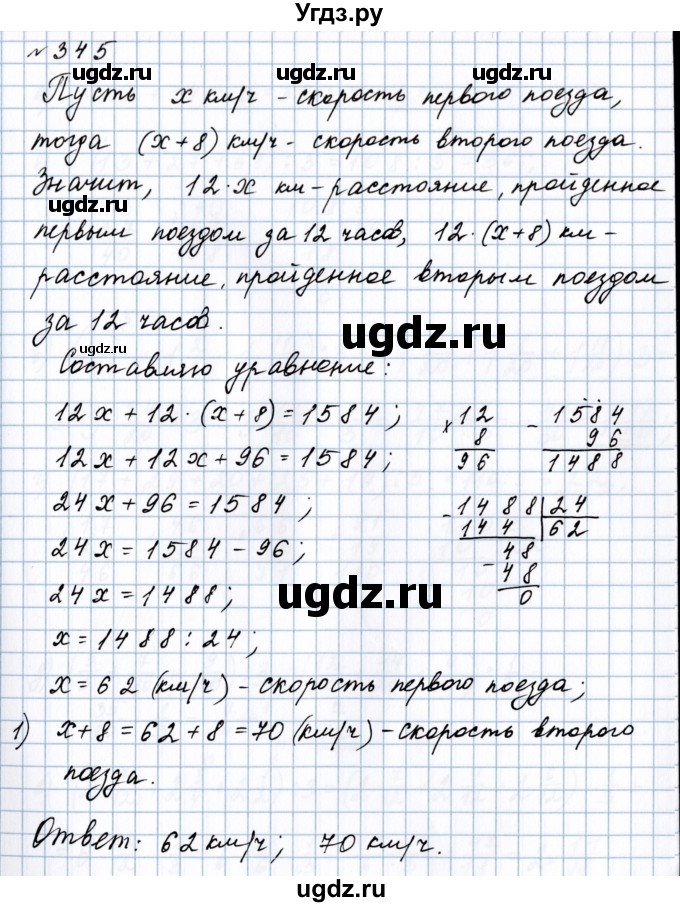 Угдз.ру
№ 345
ugdz.ru ugdz.ru
Пусть x км/ч - скорость первого поезда,
тогда (x+8) км/ч - скорость второго поезда.
Значит, 12·x км - расстояние, пройденное
ugdz.ru
первым поездом за 12 часов, 12·(x+8) км -
расстояние, пройденное вторым поездом
за 12 часов.
ugdz.ru
ugdz.ru
Составляю уравнение:
12x + 12·(x+8) = 1584;
12x + 12x + 96 = 1584;
24x + 96 = 1584;
24x = 1584 - 96;
24x = 1488;
x = 1488 : 24;
x = 62 (км/ч) - скорость первого поезда;
x 12
8
96
- 1584
96
1488
- 1488 | 24
144 | 62
48
- 48
0
ugdz.ru
1) x+8 = 62+8 = 70 (км/ч) - скорость второго
поезда.
ugdz.ru ugdz.ru
Ответ: 62 км/ч; 70 км/ч.
ugdz.ru